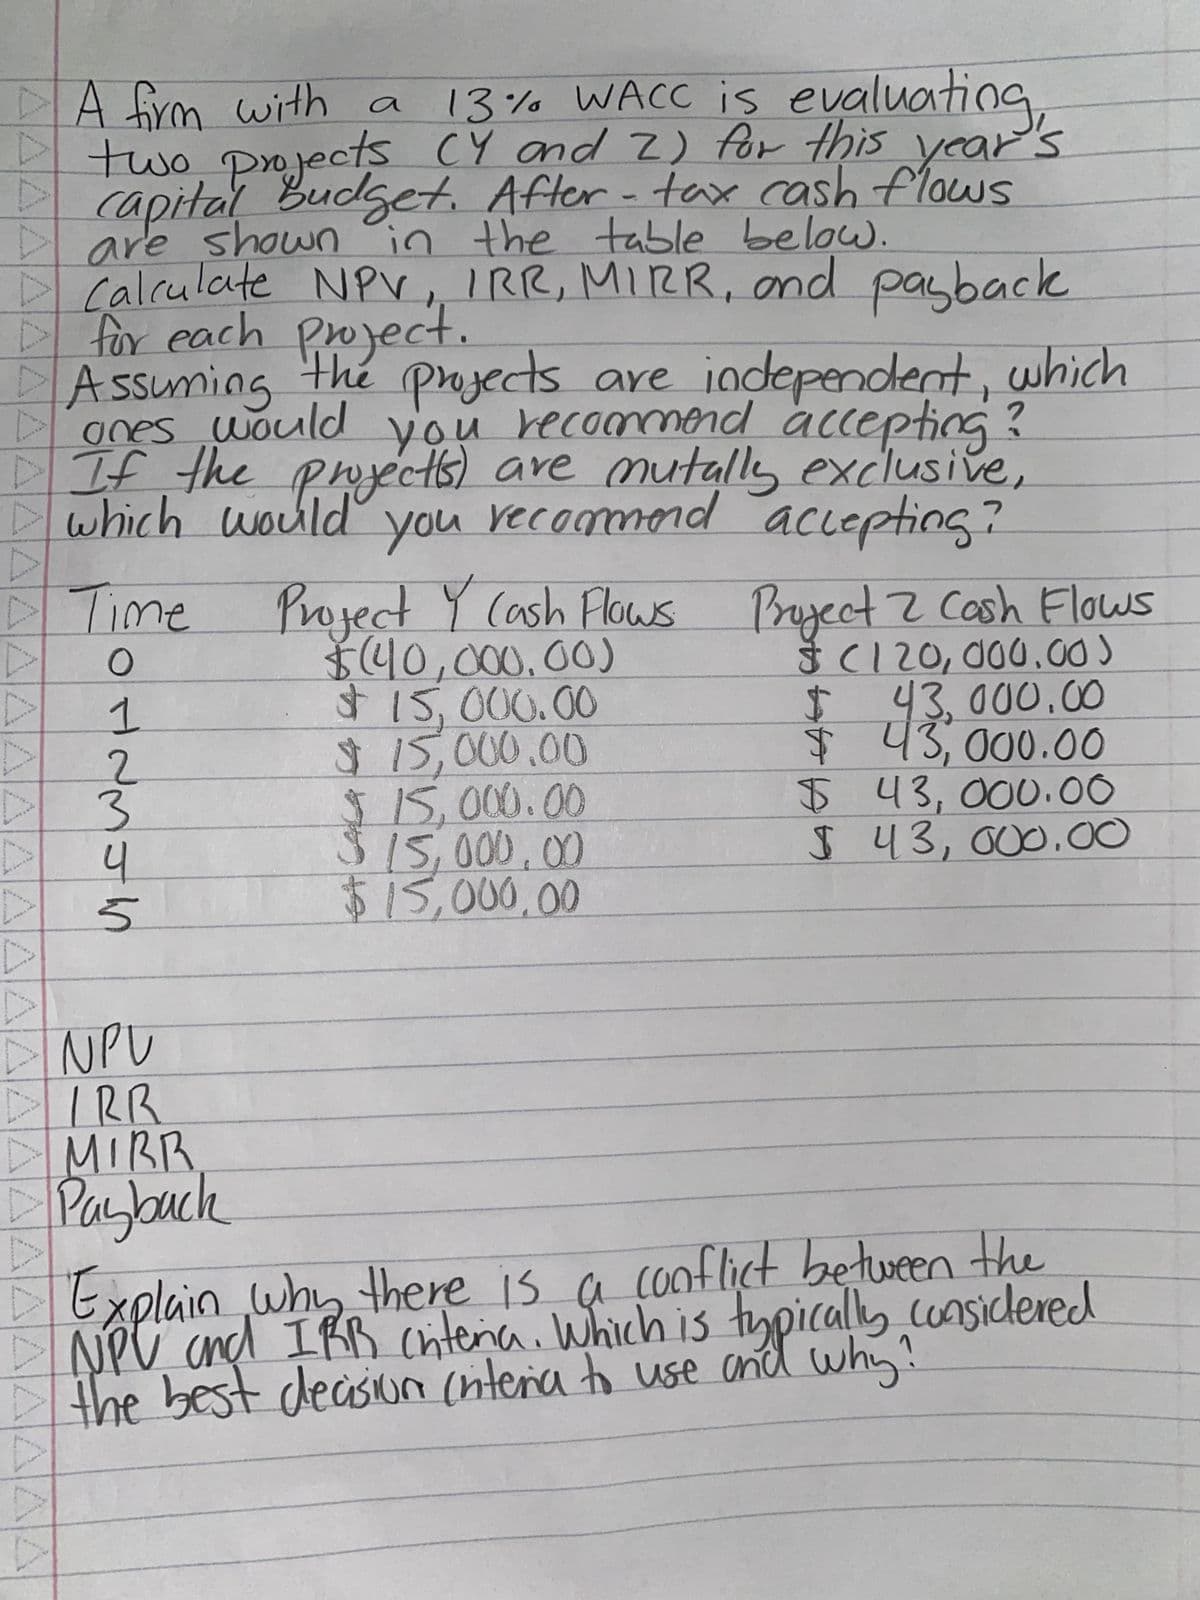 A firm with a 13% WACC is evaluating
two projects (Y and Z) for this year's
capital Budget. After-tax cash flows
are shown in the table below.
Calculate NPV, IRR, MIRR, and payback
for each project.
Assuming the projects are independent, which
ones would you recommend accepting?
If the project(s) are mutally exclusive,
which would you recommend accepting?
Time Project Y Cash Flows Project Z Cash Flows
0 $(40,000.00) $(120,000.00)
1 $ 15,000.00 $ 43,000.00
2 $ 15,000.00 $ 43,000.00
3 $ 15,000.00 $ 43,000.00
4 $ 15,000.00 $ 43,000.00
5 $ 15,000.00
NPV
IRR
MIRR
Payback
Explain why there is a conflict between the
NPV and IRR criteria. Which is typically considered
the best decision criteria to use and why?